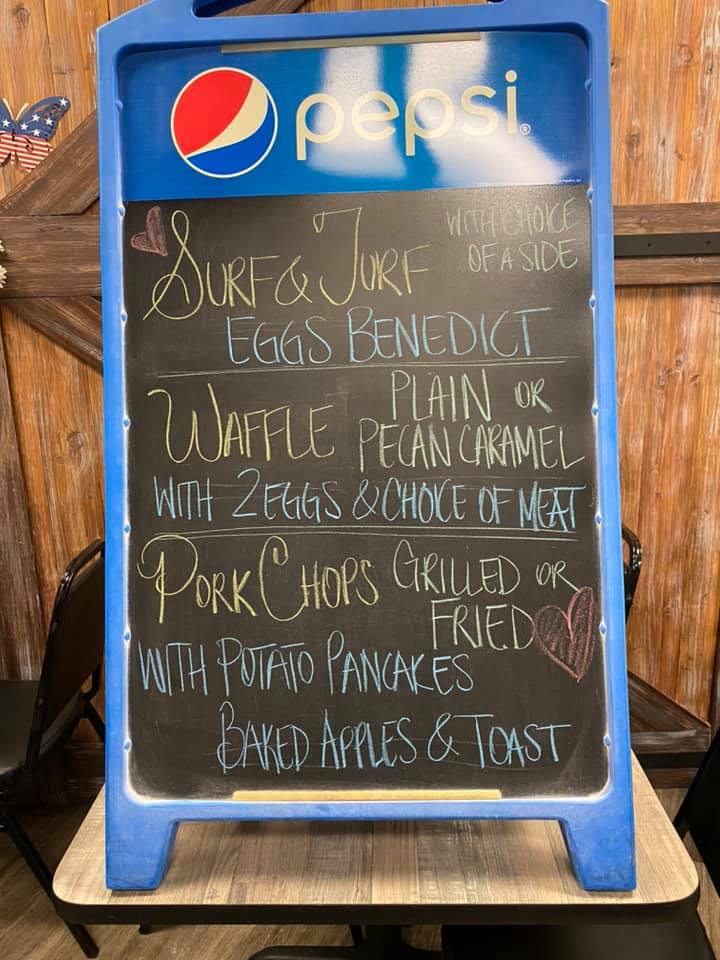 pepsi®
SURF & TURF WITH CHOICE
OF A SIDE
EGGS BENEDICT
WAFFLE PLAIN OR
PECAN CARAMEL
WITH 2 EGGS & CHOICE OF MEAT
PORK CHOPS GRILLED OR
FRIED
WITH POTATO PANCAKES
BAKED APPLES & TOAST